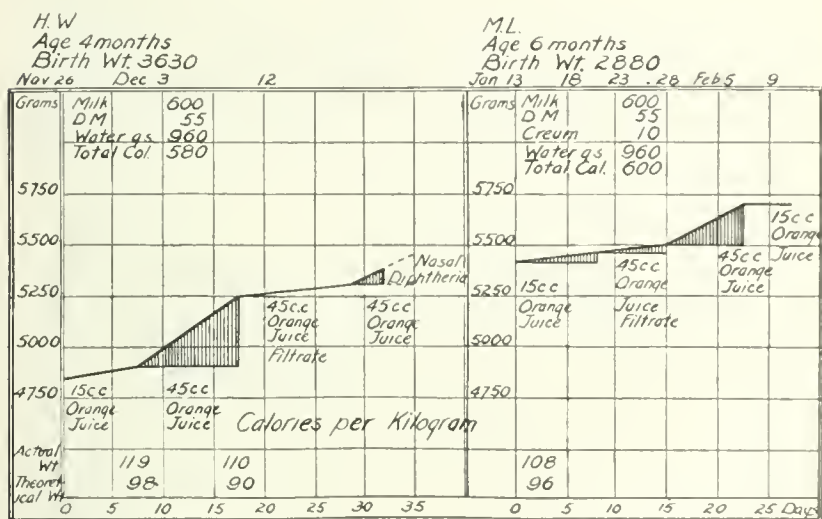 H.W
Age 4 months
Birth Wt. 3630
Nov 26 Dec 3 12
Grams
Milk 600
DM 55
Water q.s 960
Total Cal. 580
5750
5500
5250
5000
4750
Nasal
Diphtheria
15cc
Orange
Juice
45cc
Orange
Juice
45c.c
Orange
Juice
Filtrate
45cc
Orange
Juice
Calories per Kilogram
Actual
Wt
119 110
Theoret
ical Wt
98 90
0 5 10 15 20 25 30 35
M.L.
Age 6 months
Birth Wt. 2880
Jan 13 18 23 .28 Feb 5 9
Grams
Milk 600
DM 55
Creum 10
Water q.s 960
Total Cal. 600
5750
5500
5250
5000
4750
15cc
Orange
Juice
45cc
Orange
Juice
Filtrate
45cc
Orange
Juice
15cc
Orange
Juice
108
96
0 5 10 15 20 25 Days